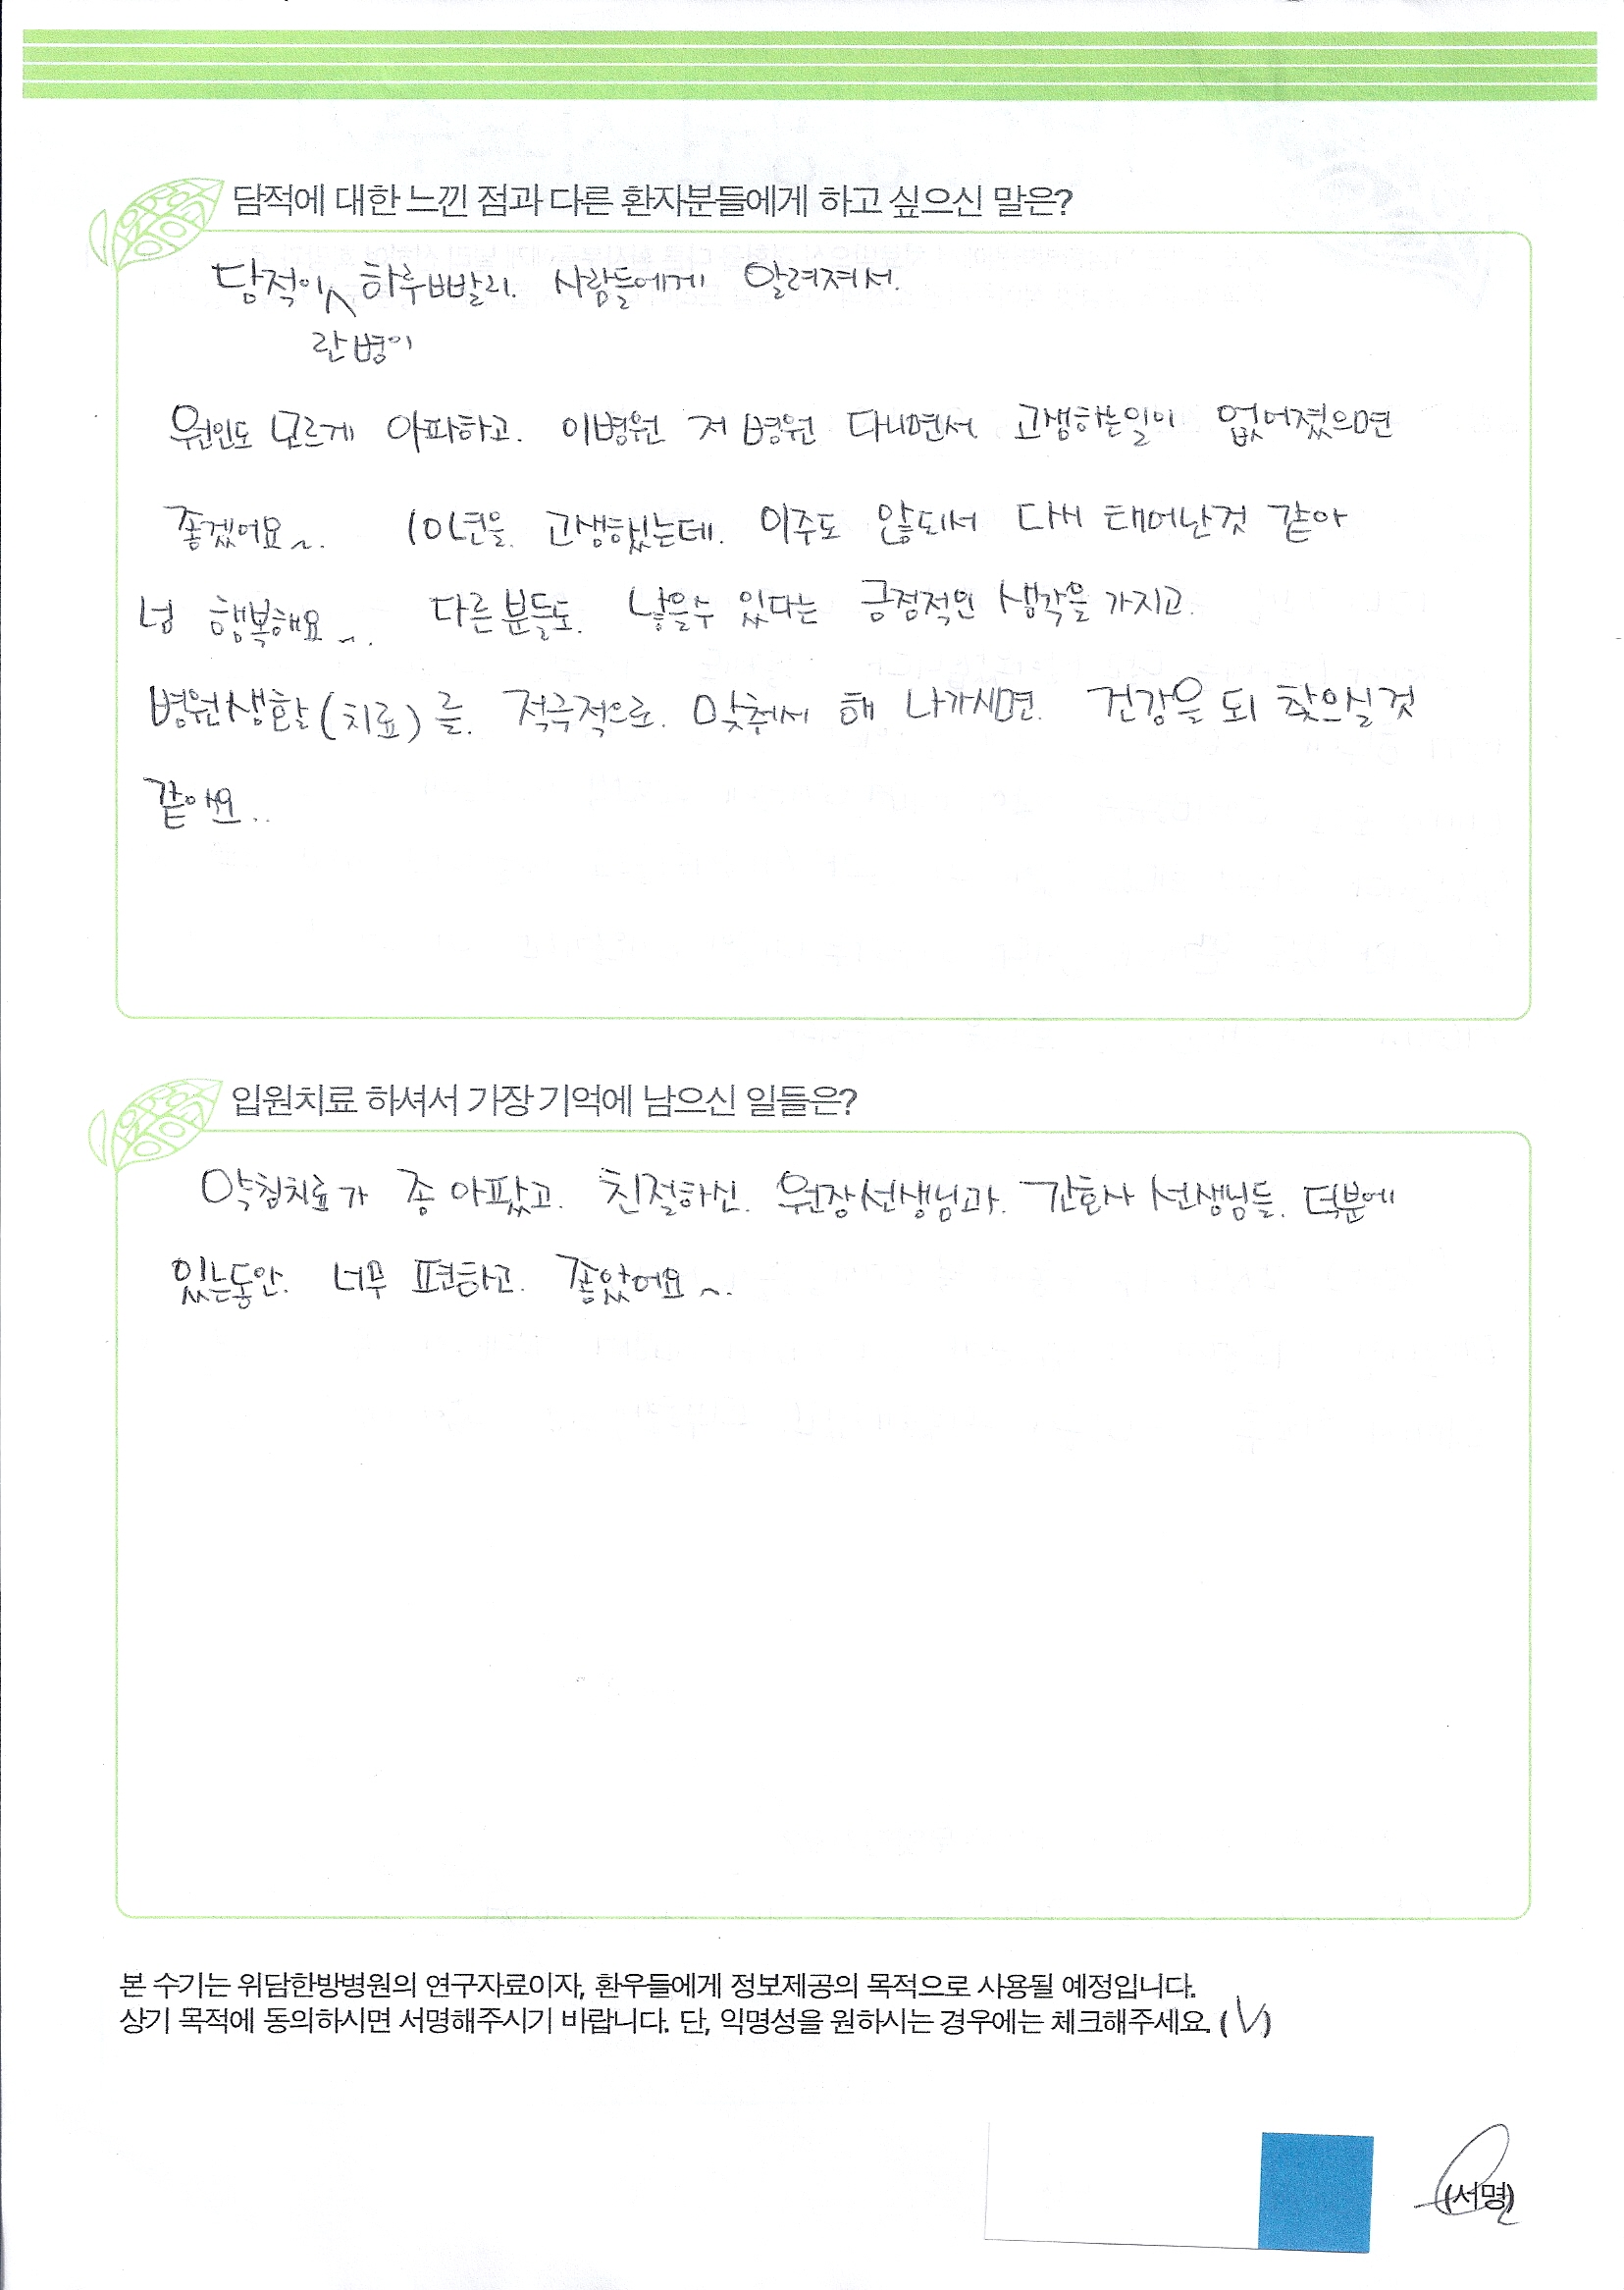 담적에 대한 느낀 점과 다른 환자분들에게 하고 싶으신 말은?
담적이 하루빨리. 사람들에게 알려져서.
란 병이
원인도 모르게 아파하고. 이병원 저 병원 다니면서 고생하는일이 없어졌으면
좋겠어요~. 10년을. 고생했는데. 이주도 않되서 다시 태어난것 같아
넘 행복해요~. 다른분들도. 낳을수 있다는 긍정적인 생각을 가지고.
병원생활(치료)를. 적극적으로. 맞춰서 해 나가시면. 건강을 되 찾으실것
같아요..
입원치료 하셔서 가장 기억에 남으신 일들은?
약침치료가 좀 아팠고. 친절하신. 원장선생님과. 간호사 선생님들. 덕분에
있는동안. 너무 편하고. 좋았어요~.
본 수기는 위담한방병원의 연구자료이자, 환우들에게 정보제공의 목적으로 사용될 예정입니다.
상기 목적에 동의하시면 서명해주시기 바랍니다. 단, 익명성을 원하시는 경우에는 체크해주세요. (V)
(서명)